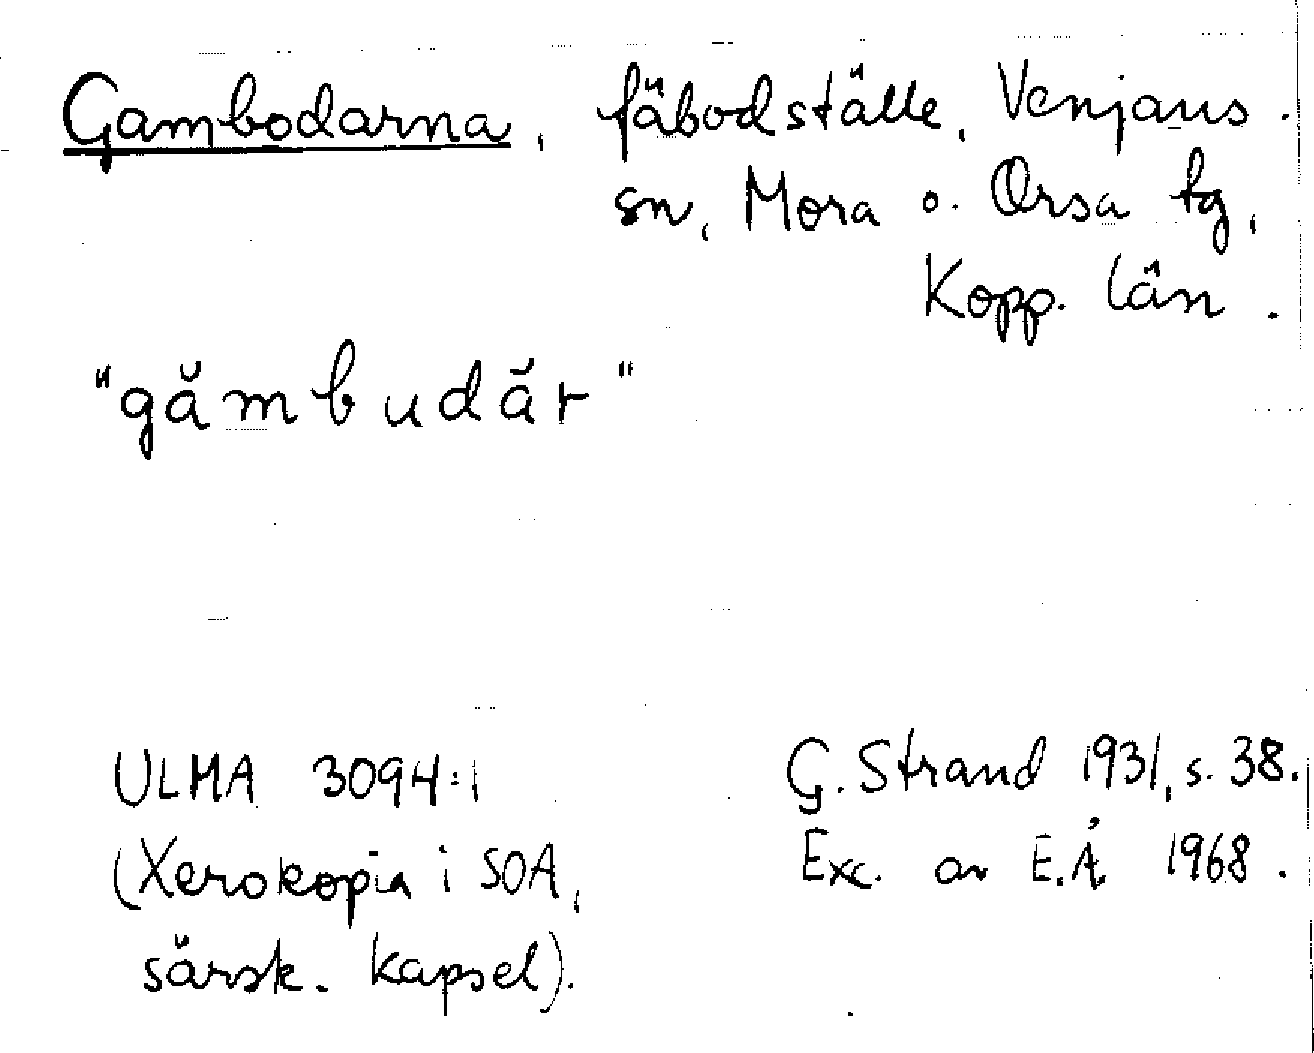 Gambodarna, fäbodställe, Venjans
sn, Mora o. Orsa tg,
Kopp. län.
"gămbudăr"
ULMA 3094:1
(Xerokopia i SOA,
särsk. kapsel).
G. Strand 1931, s. 38.
Exc. av E.Å. 1968.